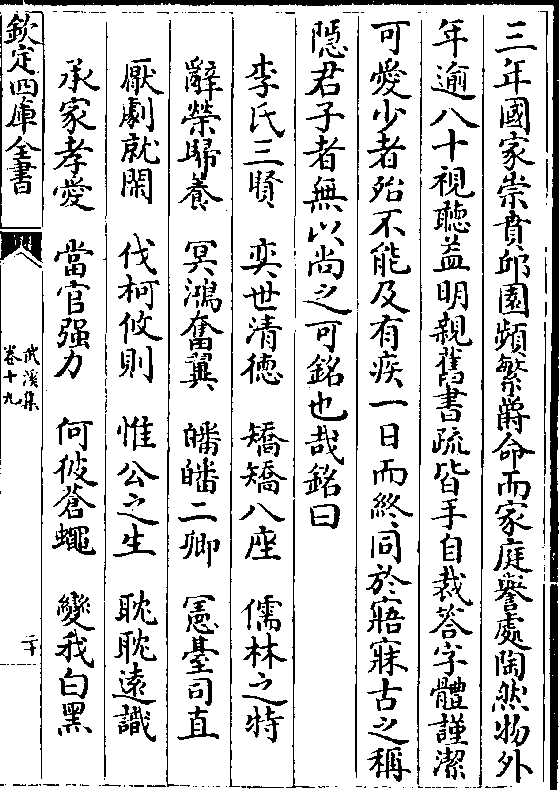 三年國家崇賁邱園頻繁爵命而家庭譽處陶然物外
年逾八十視聽益明親舊書疏皆手自裁答字體謹潔
可愛少者殆不能及有疾一日而終同於寤寐古之稱
隱君子者無以尚之可銘也哉銘曰
李氏三賢 奕世清德 矯矯八座 儒林之特
辭榮歸養 冥鴻奮翼 皤皤二卿 憲臺司直
厭劇就閑 伐柯攸則 惟公之生 耽耽遠識
承家孝愛 當官强力 何彼蒼蠅 變我白黑
欽定四庫全書
武溪集
卷十九
二十